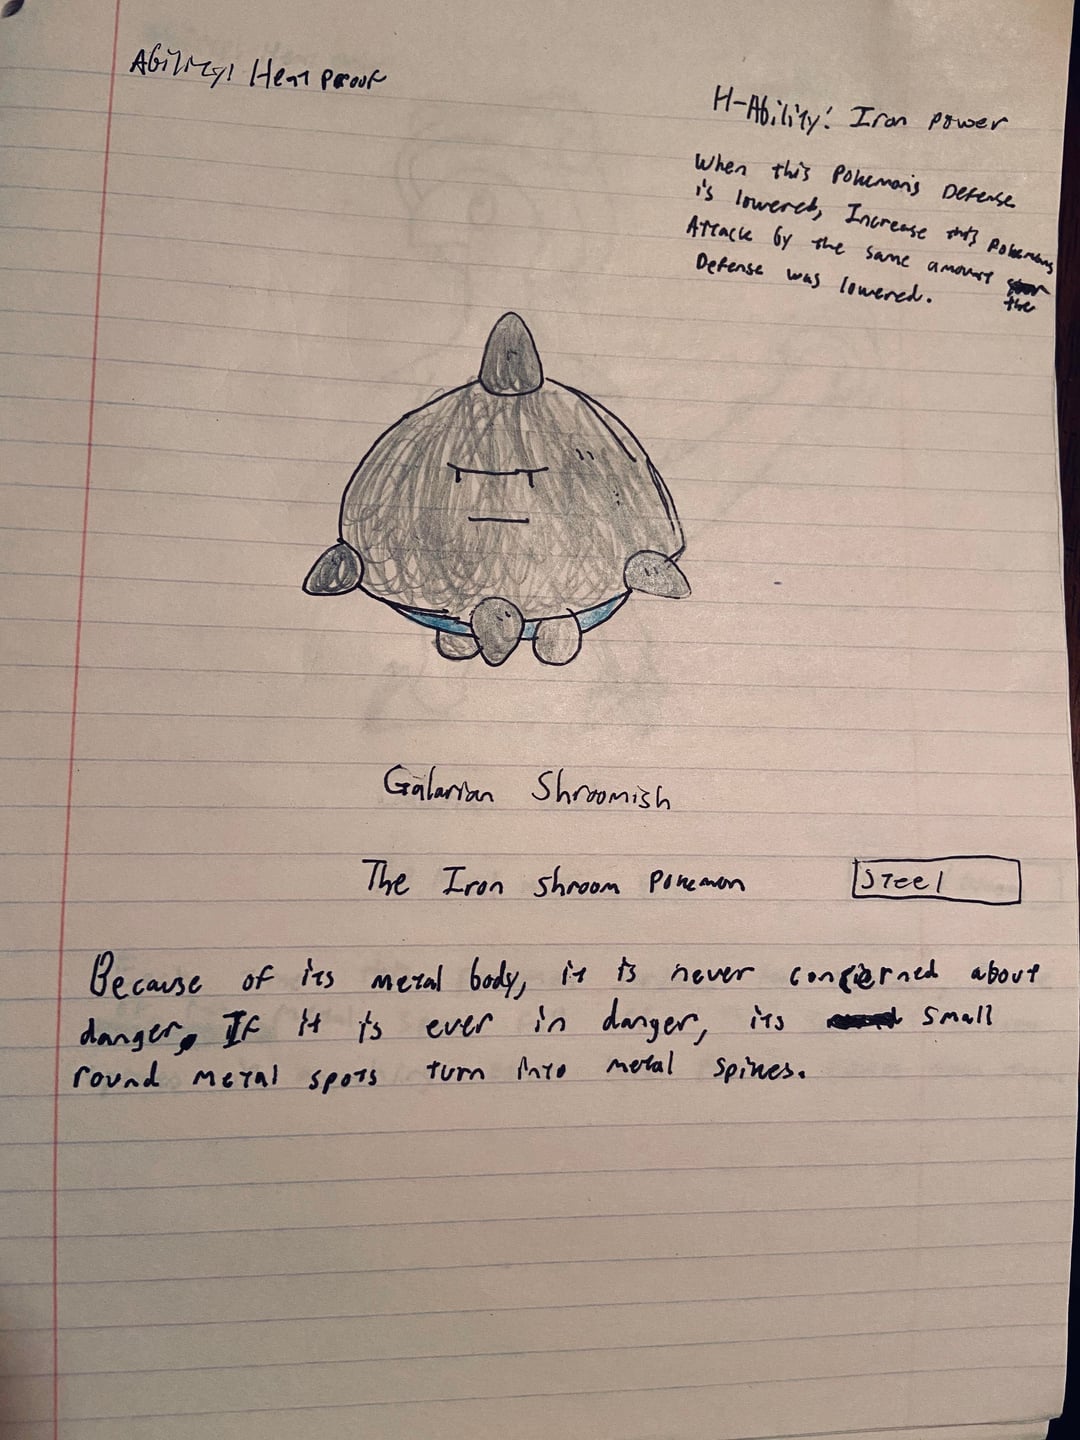 Ability: Heat Proof
H-Ability: Iron Power
When this Pokemon's Defense
is lowered, Increase this Pokemons
Attack by the same amount the
Defense was lowered.
Galarian Shroomish
The Iron Shroom Pokemon
Steel
Because of its metal body, it is never concierned about
danger. If it is ever in danger, its small
round metal spots turn into metal spikes.